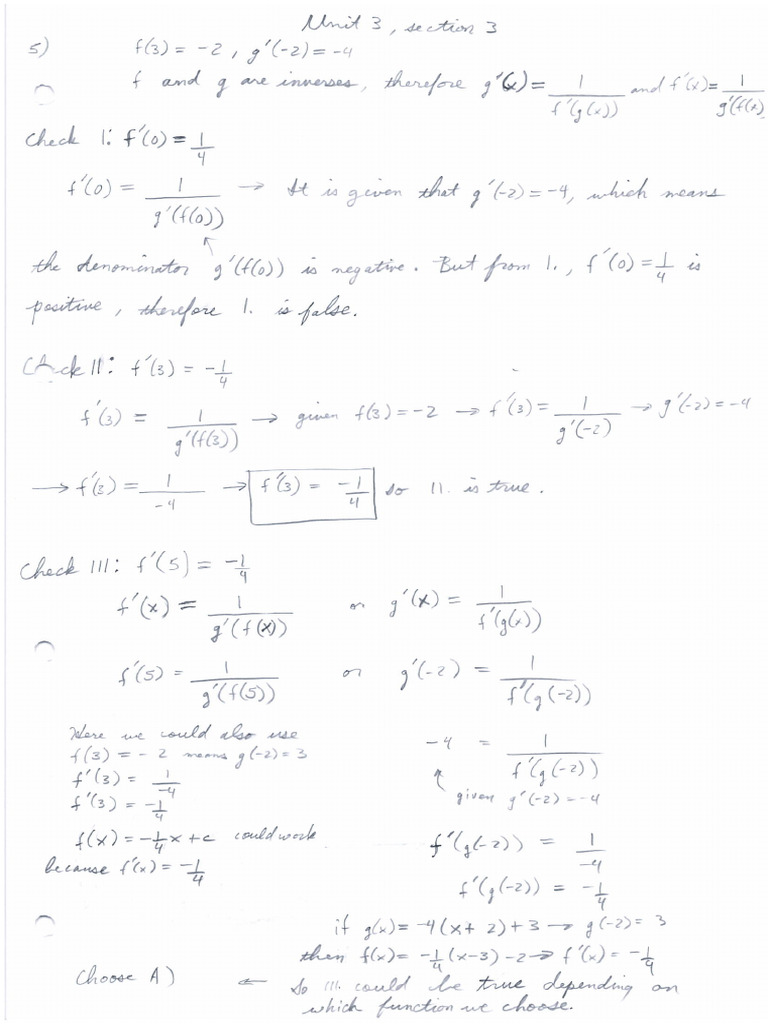 Unit 3, section 3
5) f(3) = -2, g'(-2) = -4
f and g are inverses, therefore g'(x) = 1/f'(g(x)) and f'(x) = 1/g'(f(x)
Check I: f'(0) = 1/4
f'(0) = 1/g'(f(0)) → It is given that g'(-2) = -4, which means
the denominator g'(f(0)) is negative. But from I., f'(0) = 1/4 is
positive, therefore I. is false.
Check II: f'(3) = -1/4
f'(3) = 1/g'(f(3)) → given f(3) = -2 → f'(3) = 1/g'(-2) → g'(-2) = -4
→ f'(3) = 1/-4 → f'(3) = -1/4 so II. is true.
Check III: f'(5) = -1/4
f'(x) = 1/g'(f(x)) or g'(x) = 1/f'(g(x))
f'(5) = 1/g'(f(5)) or g'(-2) = 1/f'(g(-2))
Here we could also use
f(3) = -2 means g(-2) = 3
f'(3) = 1/-4
f'(3) = -1/4
f(x) = -1/4x + c could work
because f'(x) = -1/4
-4 = 1/f'(g(-2))
given g'(-2) = -4
f'(g(-2)) = 1/-4
f'(g(-2)) = -1/4
if g(x) = -4(x+2)+3 → g(-2) = 3
then f(x) = -1/4(x-3)-2 → f'(x) = -1/4
So III. could be true depending on
which function we choose.
← Choose A)